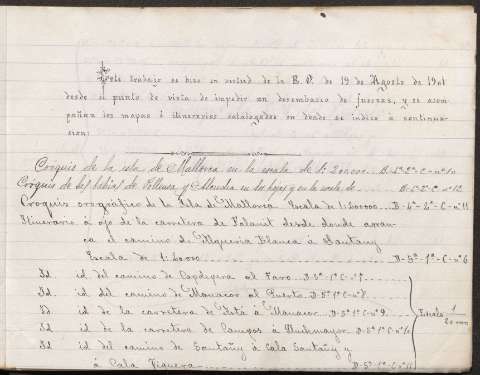 Este trabajo se hizo en virtud de la R. O. de 19 de Agosto de 1901
desde el punto de vista de impedir un desembarco de fuerzas, y se acom-
pañan los mapas é itinerarios catalogados en donde se indica á continua-
cion:
Croquis de la isla de Mallorca en la escala de 1:200000.. B-4ª-2ª-C-nº10
Croquis de las bahias de Pollensa y Alcudia en dos hojas y en la escala de ... B-5ª-2ª-C-nº12
Croquis orográfico de la Isla de Mallorca Escala de 1:200000 B-4ª-2ª-C-nº11
Itinerario á ojo de la carretera de Felanit desde donde arran-
ca el camino de Alqueria Blanca á Santañy
Escala de 1:20.000 B-5ª-1ª-C-nº6
Id id del camino de Capdepera al Faro. B-5ª 1ª C-nº7
Id id del camino de Manacor al Puerto. B-5ª 1ª C-nº8.
Id id de la carretera de Artá á Manacor. B-5ª 1ª C nº9.
Id id de la carretera de Campos á Lluchmayor B-5ª 1ª C-nº10
Id id del camino de Santañy á Cala Santañy y
á Cala Figuera B-5ª-1ª-C-nº11
Escala 1
20.000